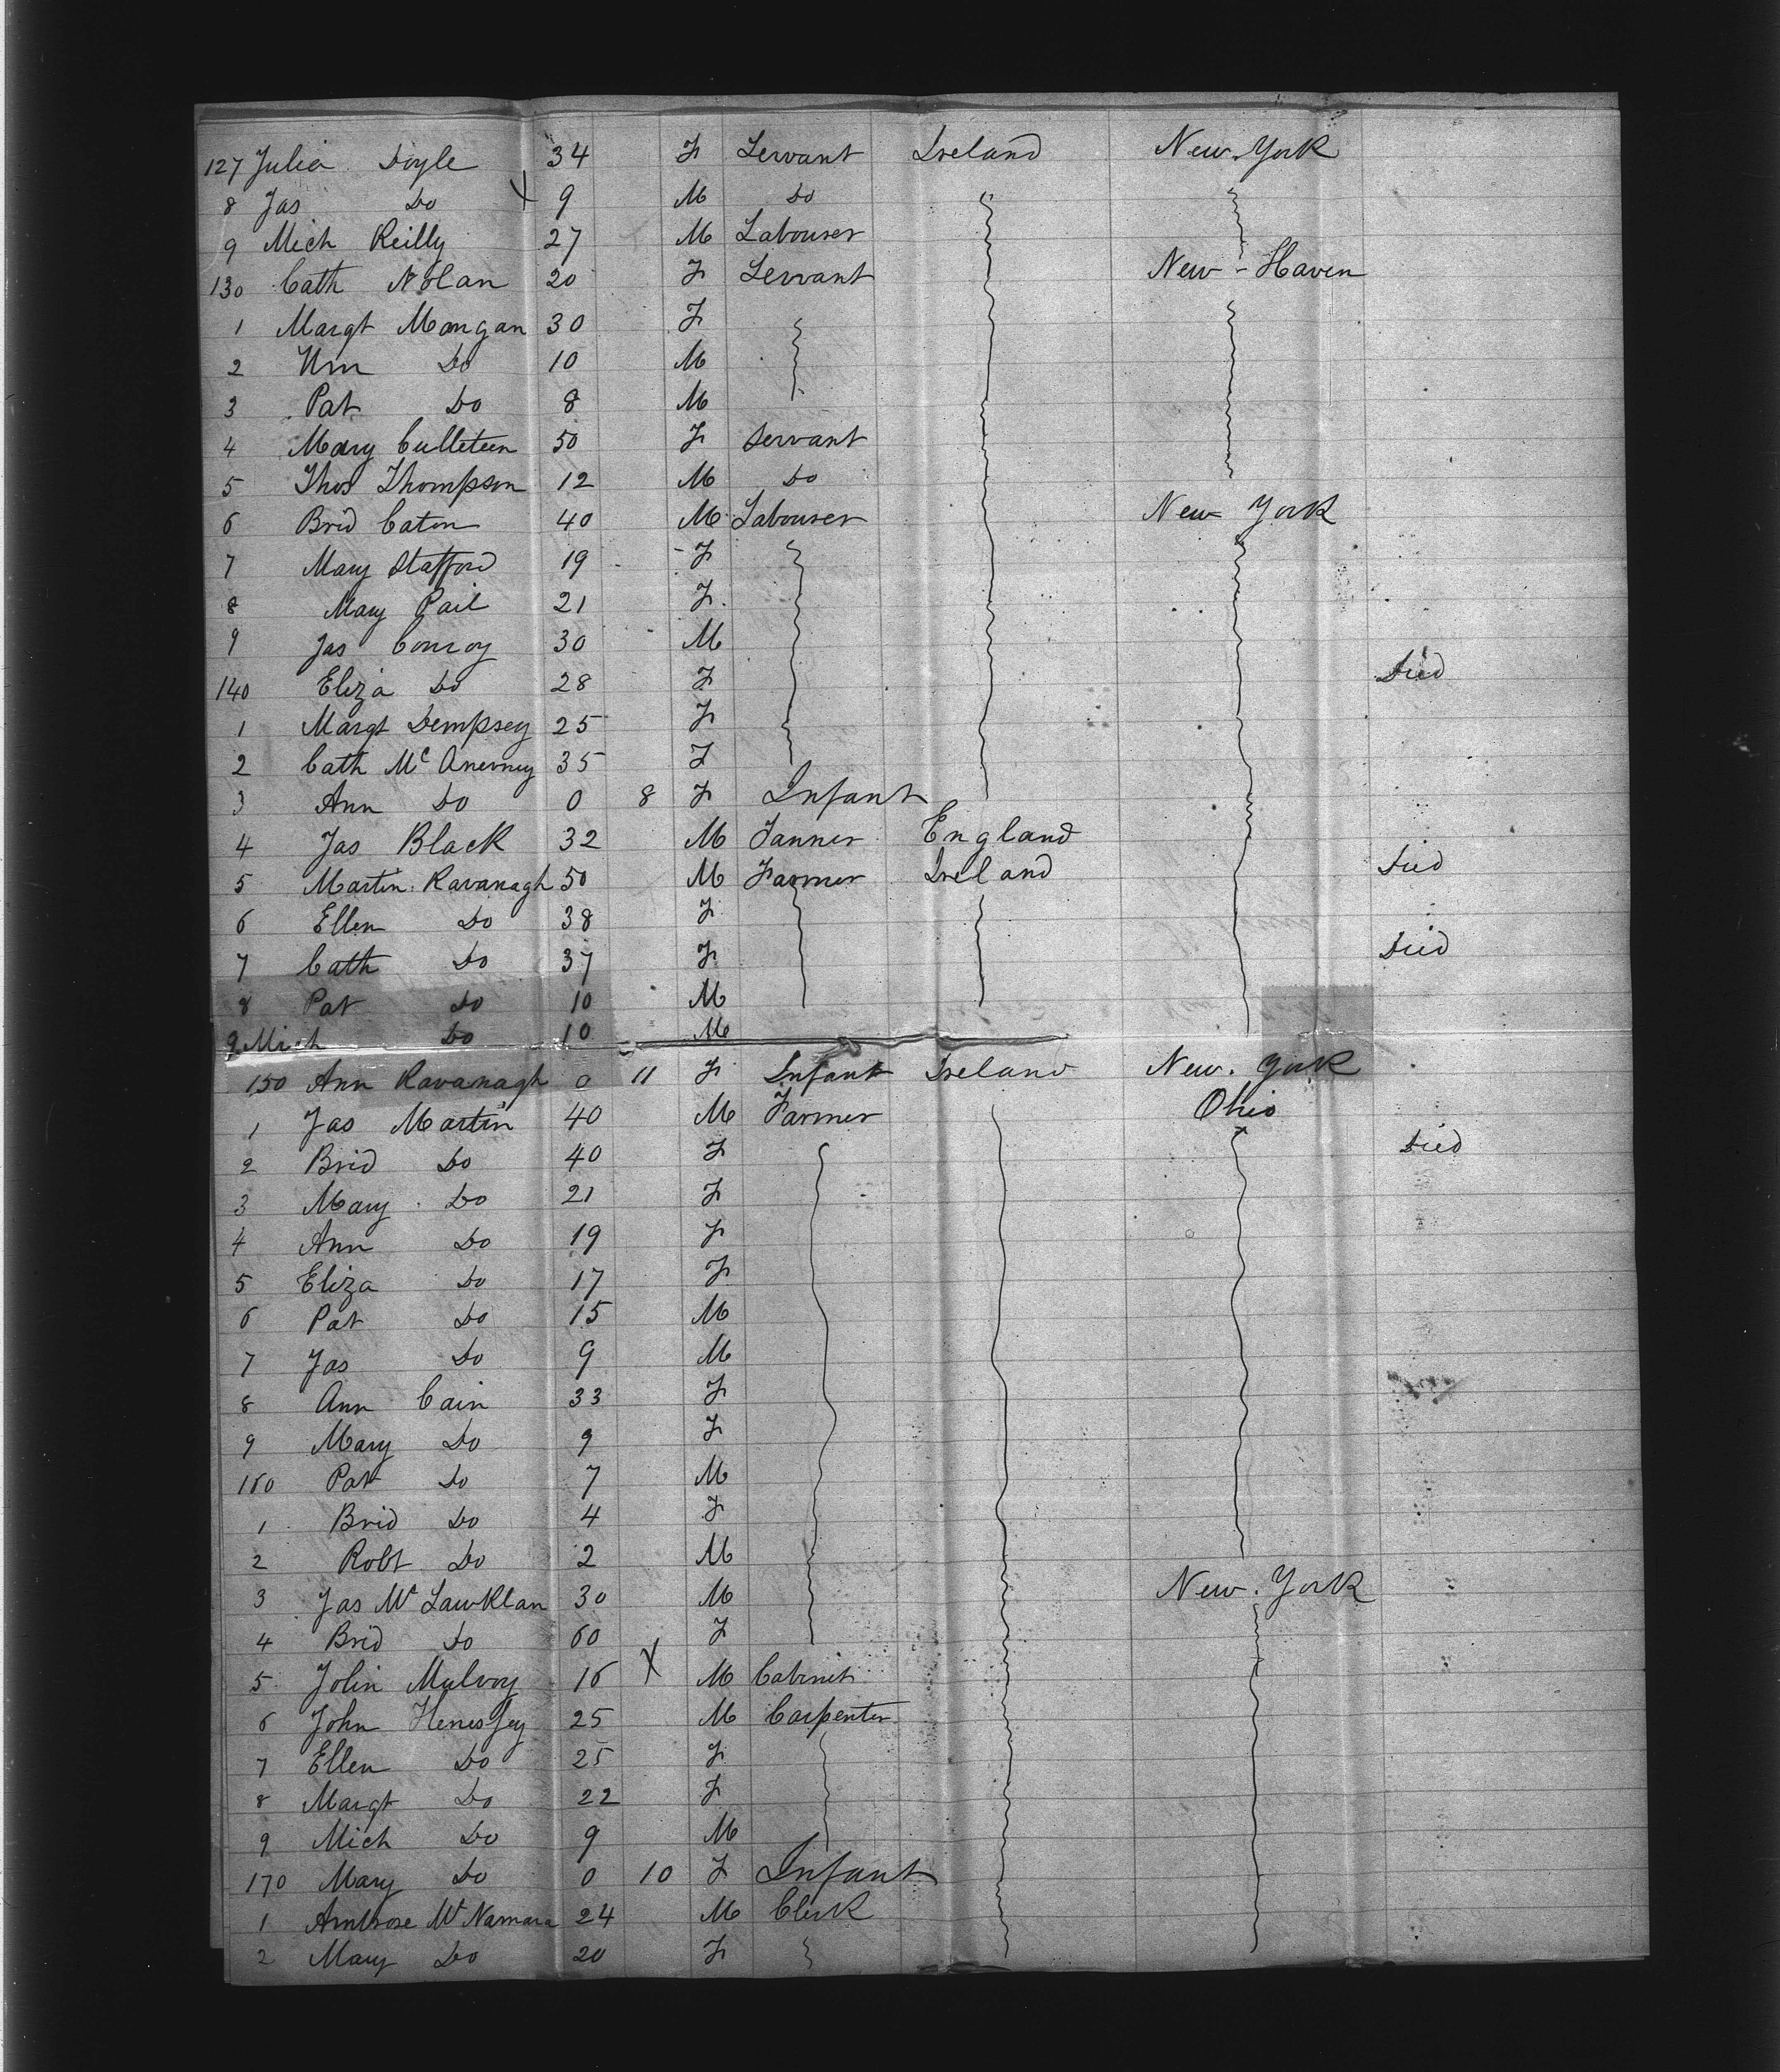 127 Julia Doyle 34 F Servant Ireland New York
8 Jas Do X 9 M Do
9 Mich Reilly 27 M Labourer
130 Cath Nolan 20 F Servant New-Haven
1 Margt Mangan 30 F
2 Wm Do 10 M
3 Pat Do 8 M
4 Mary Culleteen 50 F Servant
5 Thos Thompson 12 M Do
6 Brid Caton 40 M Labourer New York
7 Mary Stafford 19 F
8 Mary Pail 21 F
9 Jas Conroy 30 M
140 Eliza Do 28 F Died
1 Margt Dempsey 25 F
2 Cath Mc Anerney 35 F
3 Ann Do 0 8 F Infant
4 Jas Black 32 M Tanner England
5 Martin Kavanagh 50 M Farmer Ireland Died
6 Ellen Do 38 F
7 Cath Do 37 F Died
8 Pat Do 10 M
9 Mich Do 10 M
150 Ann Kavanagh 0 11 F Infant Ireland New York
1 Jas Martin 40 M Farmer Ohio
2 Brid Do 40 F Died
3 Mary Do 21 F
4 Ann Do 19 F
5 Eliza Do 17 F
6 Pat Do 15 M
7 Jas Do 9 M
8 Ann Cain 33 F
9 Mary Do 9 F
160 Pat Do 7 M
1 Brid Do 4 F
2 Robt Do 2 M
3 Jas Mc Lawklan 30 M New York
4 Brid Do 60 F
5 John Mulvoy 16 X M Cabinet
6 John Henessey 25 M Carpenter
7 Ellen Do 25 F
8 Margt Do 22 F
9 Mich Do 9 M
170 Mary Do 0 10 F Infant
1 Ambrose Mc Namara 24 M Clerk
2 Mary Do 20 F